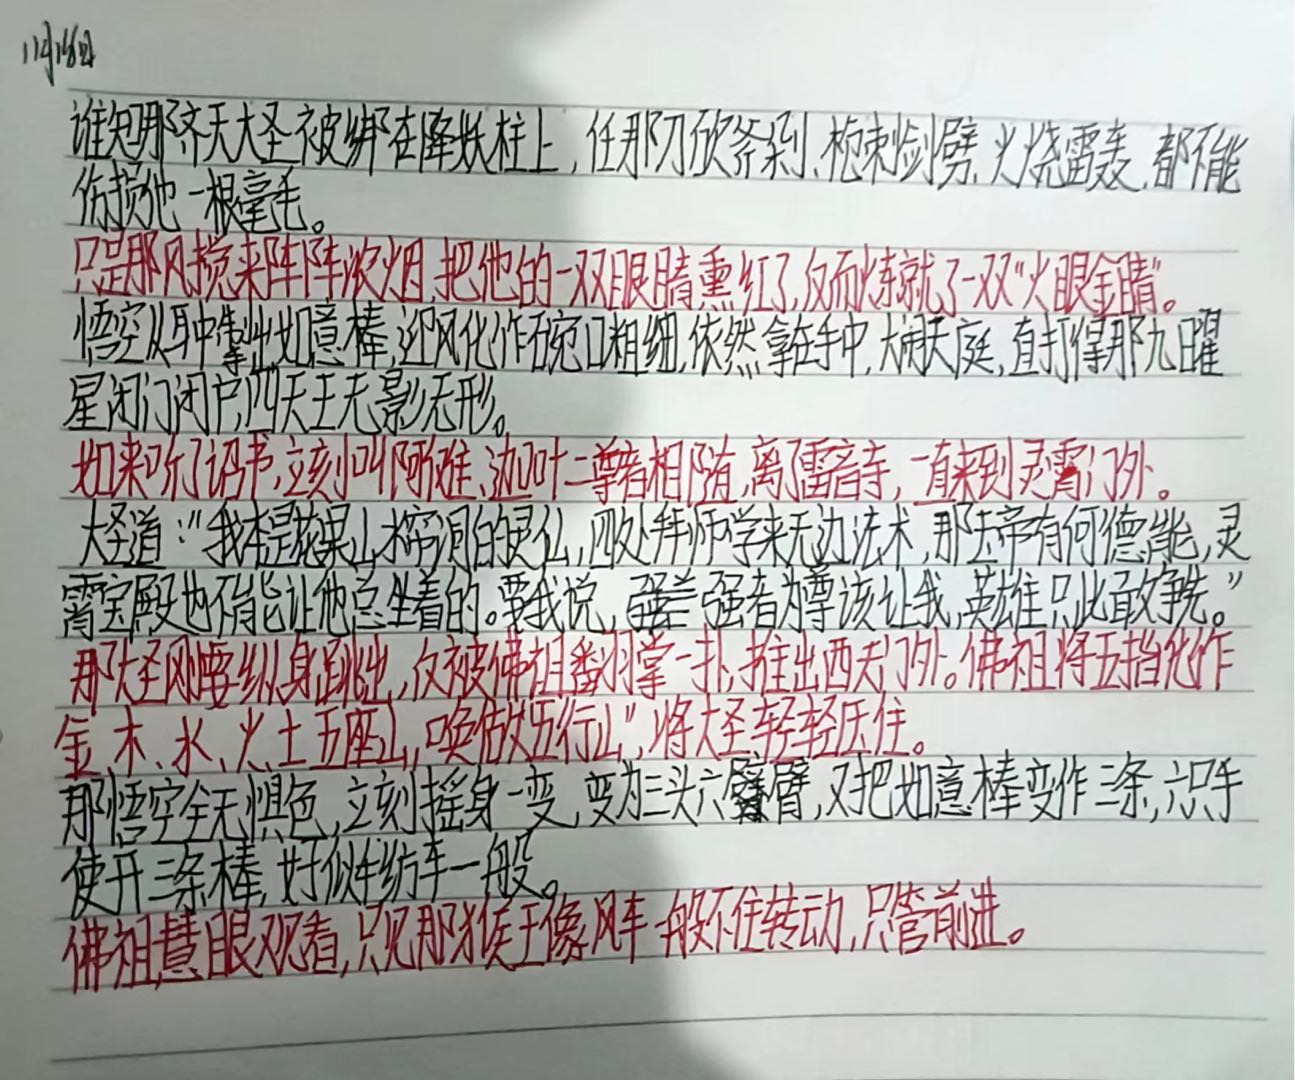 11月18日
谁知那齐天大圣被绑在降妖柱上，任那刀砍斧剁、枪刺剑劈、火烧雷轰，都不能
伤损他一根毫毛。
只是那风搅来阵阵浓烟，把他的一双眼睛熏红了，反而炼就了一双“火眼金睛”。
悟空从耳中掣出如意棒，迎风化作碗口粗细，依然拿在手中，大闹天庭，直打得那九曜
星闭门闭户，四天王无影无形。
如来听了诏书，立刻叫阿难、迦叶二尊者相随，离了雷音寺，一直来到灵霄门外。
大圣道：“我本是花果山水帘洞的灵仙，四处拜师学来无边法术，那玉帝有何德能，灵
霄宝殿也不能让他总坐着的。要我说，强者为尊该让我，英雄只此敢争先。”
那大圣刚要纵身跳出，反被佛祖翻掌一扑，推出西天门外。佛祖将五指化作
金、木、水、火、土五座山，唤做“五行山”，将大圣轻轻压住。
那悟空全无惧色，立刻摇身一变，变为三头六臂，又把如意棒变作三条，六只手
使开三条棒，好似纺车一般。
佛祖慧眼观看，只见那猴王像风车一般不住转动，只管前进。